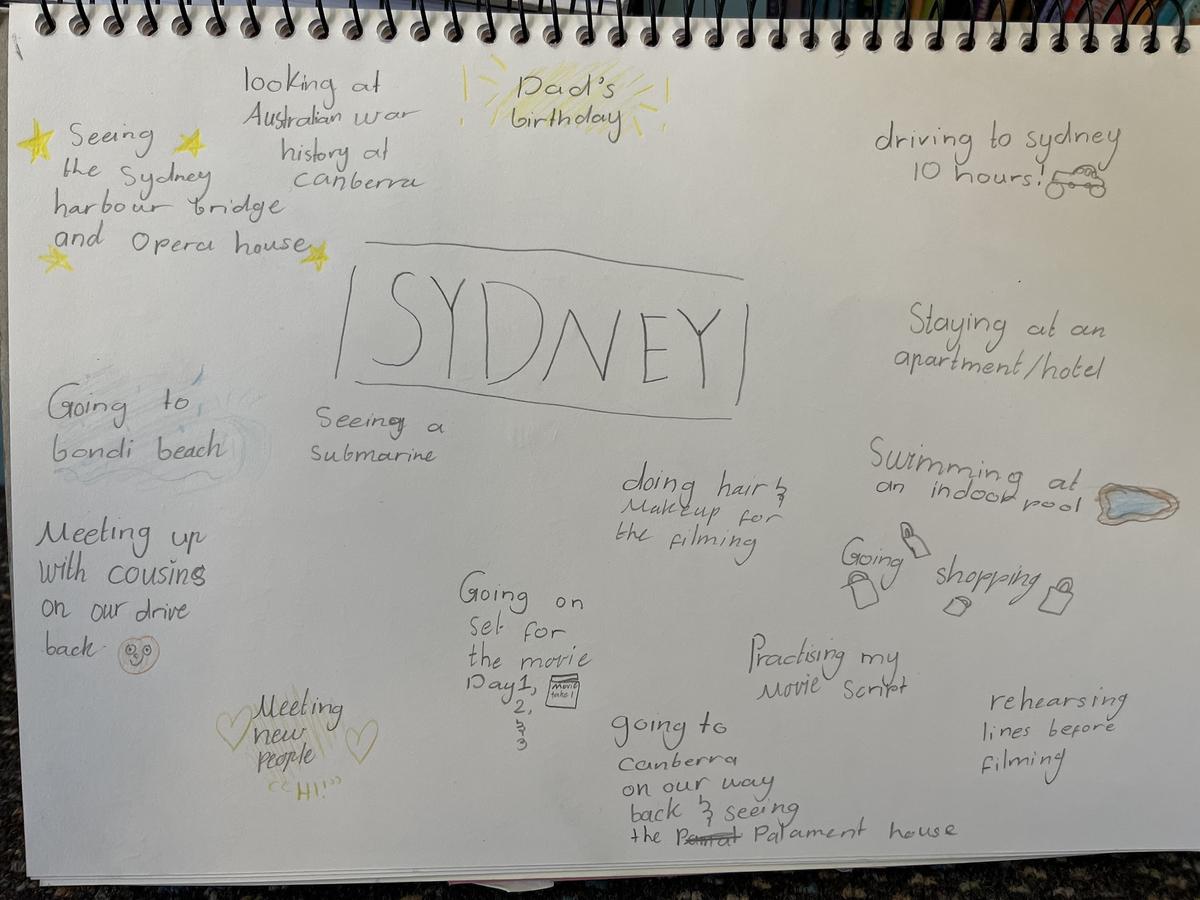 looking at
Australian war
history at
canberra
Dad's
birthday
driving to sydney
10 hours!
Seeing
the Sydney
harbour bridge
and Opera house
SYDNEY
Staying at an
apartment/hotel
Going to
bondi beach
Seeing a
submarine
doing hair &
Makeup for
the filming
Swimming at
an indoor pool
Meeting up
with cousins
on our drive
back
Going shopping
Going on
set for
the movie
Day1,
2,
&
3
Movie
take 1
Practising my
Movie script
Meeting
new
people
"Hi"
going to
canberra
on our way
back & seeing
the Palament house
rehearsing
lines before
filming